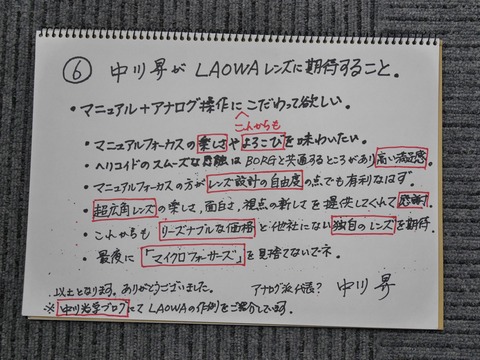 ⑥ 中川昇が LAOWAレンズに期待すること。
• マニュアル+アナログ操作にこだわって欲しい。
これからも
• マニュアルフォーカスの楽しさやよろこびを味わいたい。
• ヘリコイドのスムーズな感触はBORGと共通するところがあり高い満足感。
• マニュアルフォーカスの方がレンズ設計の自由度の点でも有利なはず。
• 超広角レンズの楽しさ、面白さ、視点の新しさを提供してくれて感謝。
• これからもリーズナブルな価格と他社にない独自のレンズを期待。
• 最後に「マイクロフォーサーズ」を見捨てないでネ。
以上となります。ありがとうございました。 アナログ派代表? 中川 昇
※中川光学ブログにてLAOWAの作例をご紹介しています。